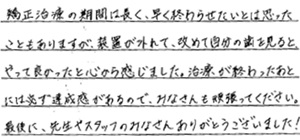 矯正治療の期間は長く、早く終わらせたいとは思った
こともありますが、装置が外れて、改めて自分の歯を見ると、
やって良かったと心から感じました。治療が終わったあと
には必ず達成感があるので、みなさんも頑張ってください。
最後に、先生やスタッフのみなさんありがとうございました!